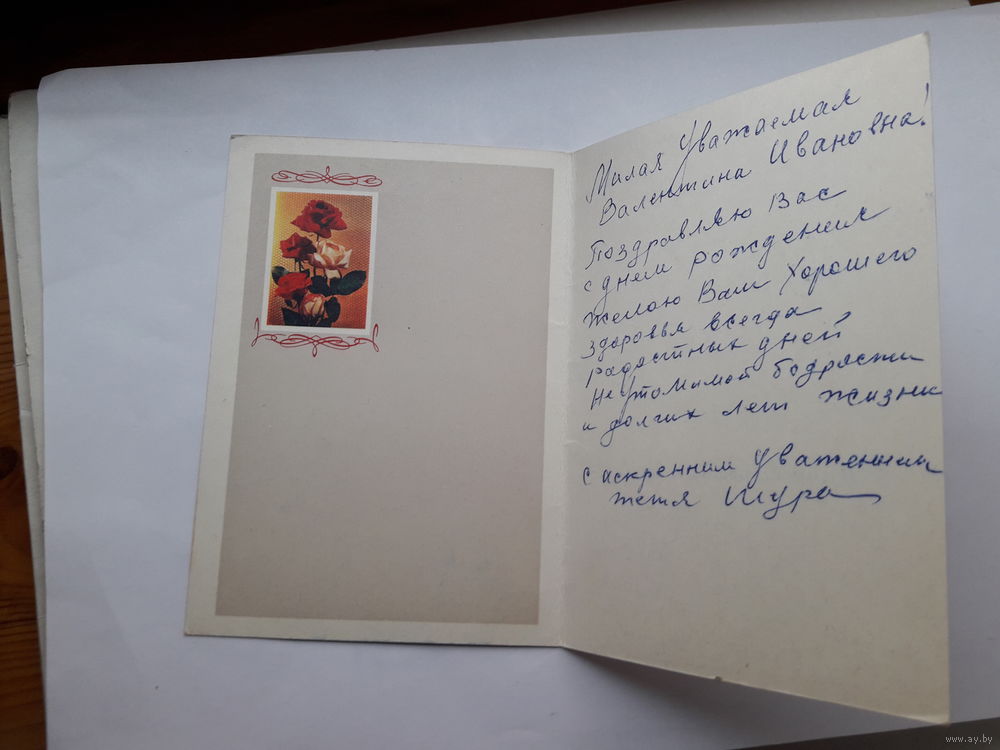 Милая Уважаемая
Валентина Ивановна!
Поздравляю Вас
с днем рождения
желаю Вам Хорошего
здоровья всегда
радостных дней
Неутомимой бодрости
и долгих лет жизни
с искренним уважением
тетя Шура
www.ay.by